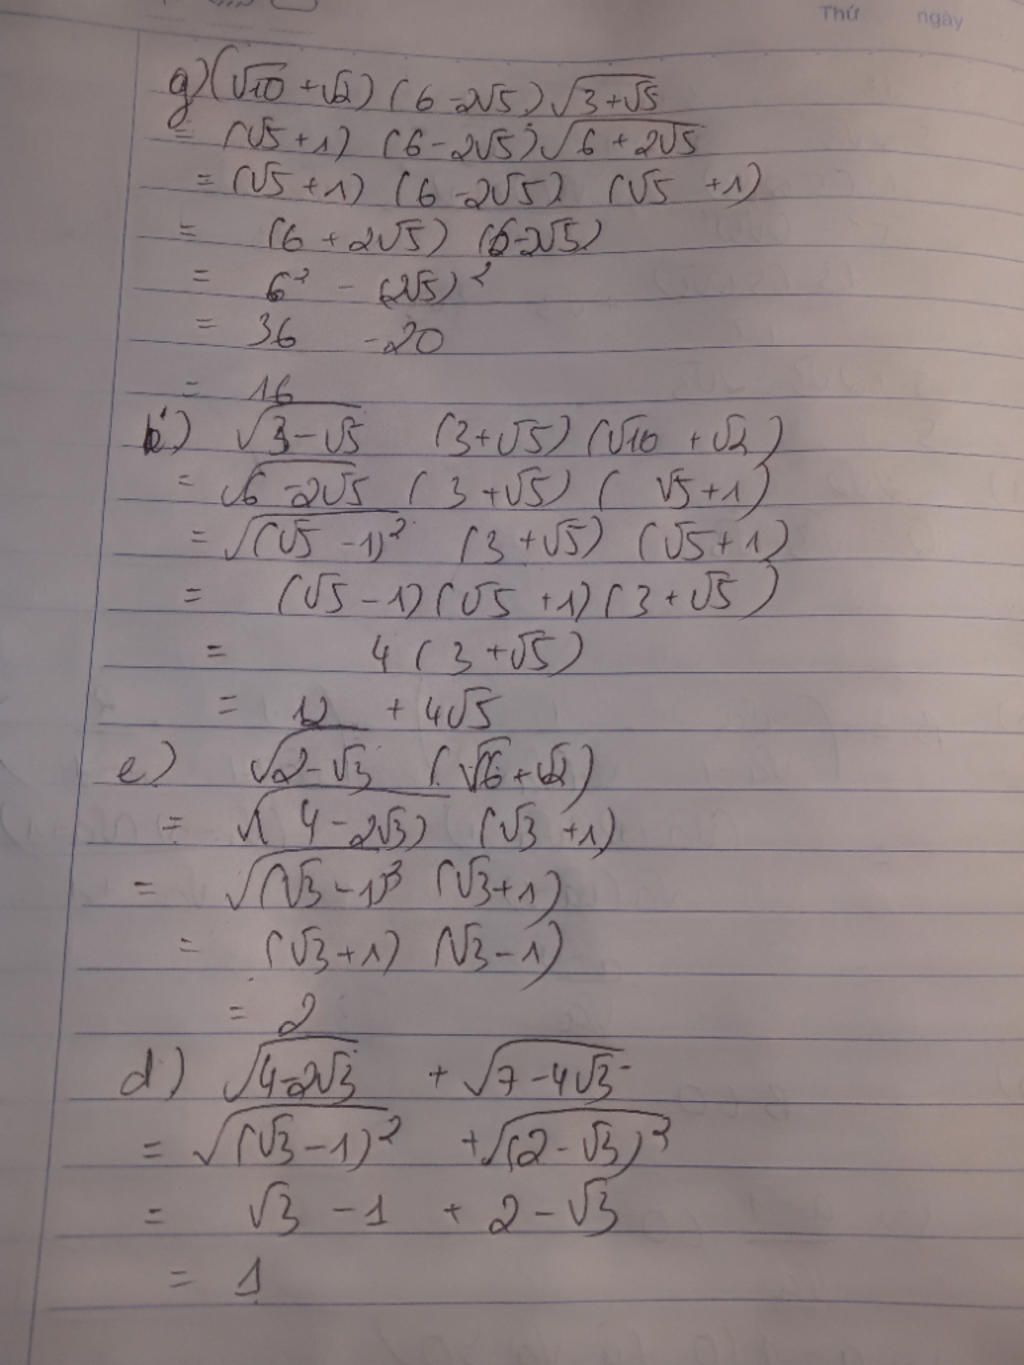 Thứ ngày
g) (√10 + √2) (6 - 2√5) √(3 + √5)
= (√5 + 1) (6 - 2√5) √(6 + 2√5)
= (√5 + 1) (6 - 2√5) (√5 + 1)
= (6 + 2√5) (6 - 2√5)
= 6² - (2√5)²
= 36 - 20
= 16
b') √(3 - √5) (3 + √5) (√10 + √2)
= √(6 - 2√5) (3 + √5) (√5 + 1)
= √((√5 - 1)²) (3 + √5) (√5 + 1)
= (√5 - 1) (√5 + 1) (3 + √5)
= 4 (3 + √5)
= 12 + 4√5
e) √(2 - √3) (√6 + √2)
= √((4 - 2√3)) (√3 + 1)
= √((√3 - 1)²) (√3 + 1)
= (√3 + 1) (√3 - 1)
= 2
d) √(4 - 2√3) + √(7 - 4√3)
= √((√3 - 1)²) + √((2 - √3)²)
= √3 - 1 + 2 - √3
= 1